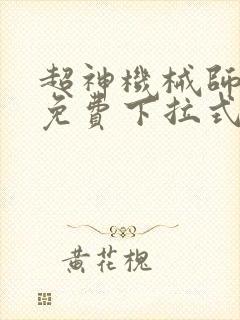 超神機械師
免費下拉式
黃花槐